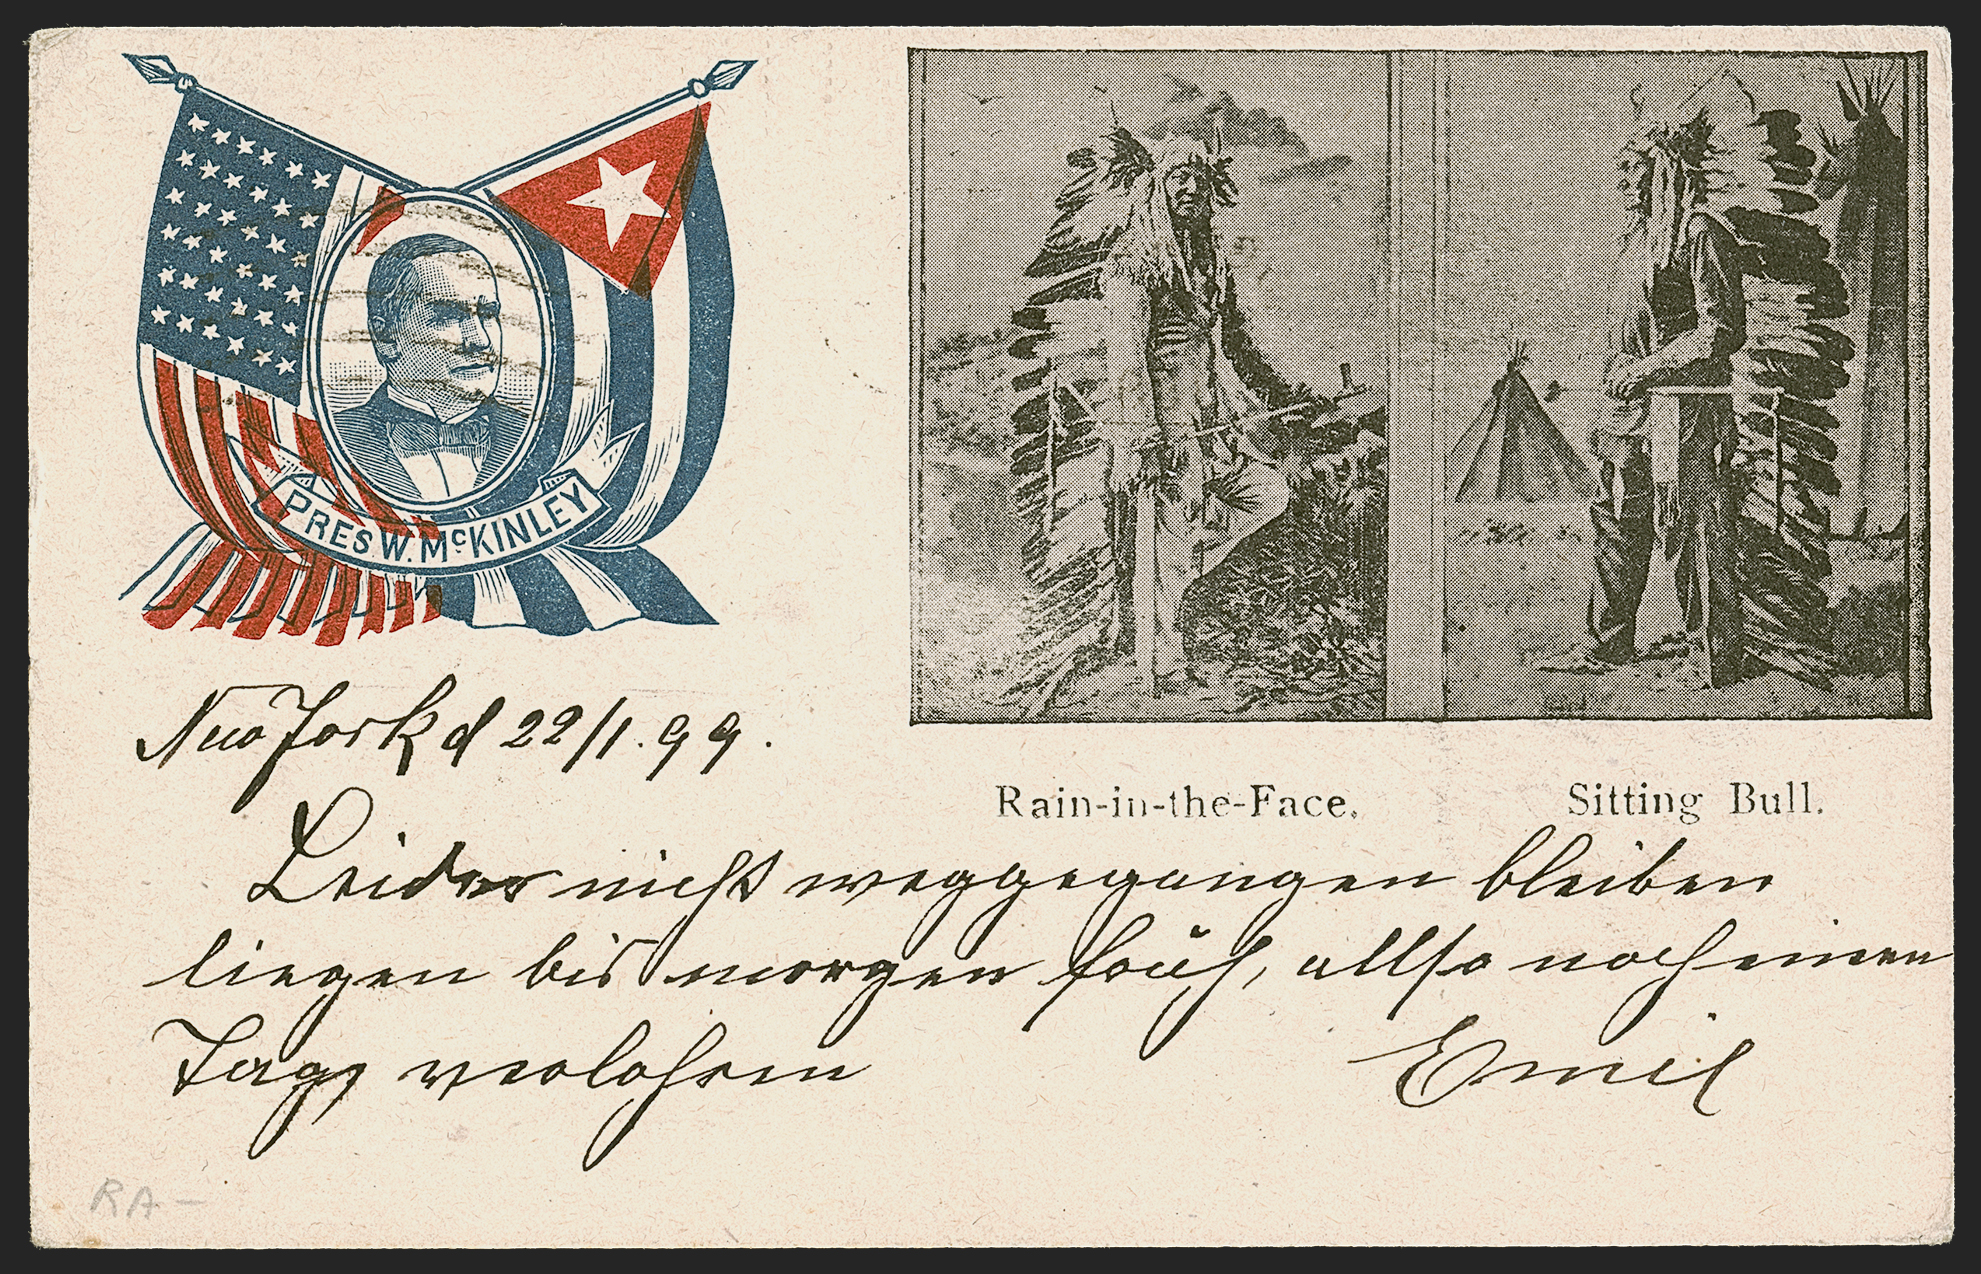 PRES. W. McKINLEY
Rain-in-the-Face. Sitting Bull.
New York d 22/1.99.
Leider nicht weggegangen bleiben
liegen bis morgen früh, allso noch einen
Tag verlohren Emil
RA-